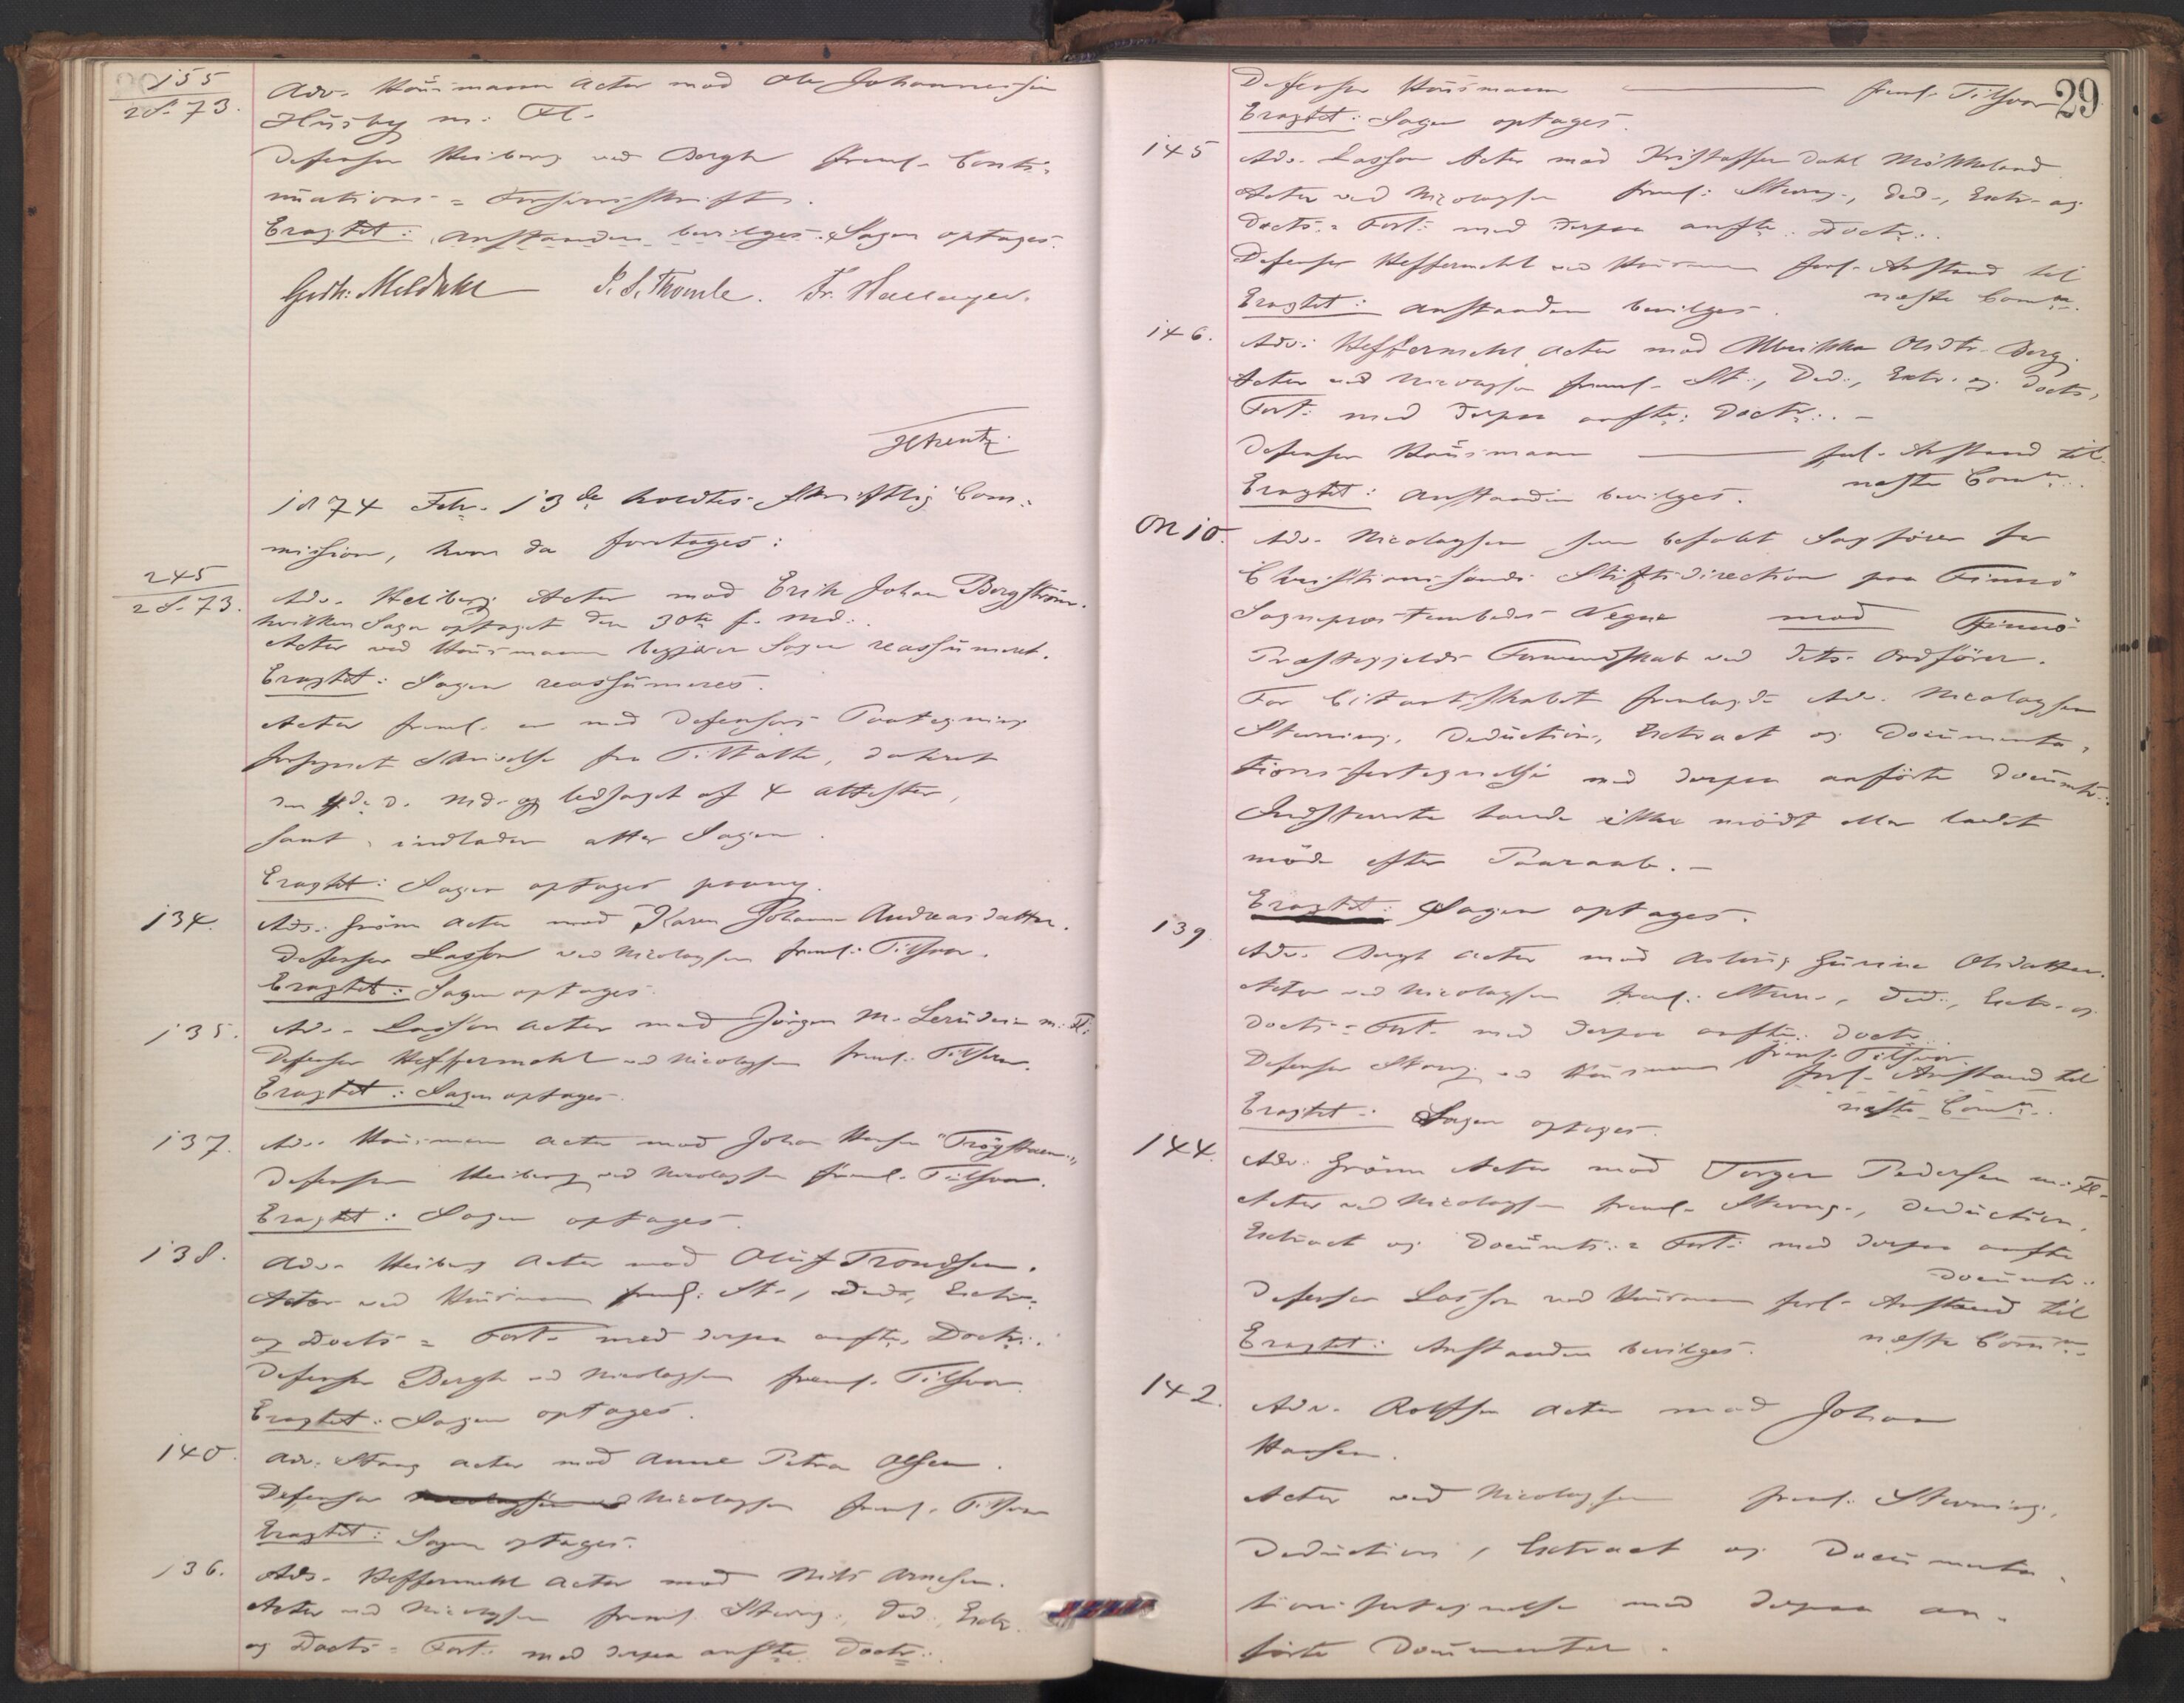 155
28.73.
Adv. Hausmann Actor mod Ole Johannessen
Husby m: Fl.
Defensor Heiberg ved Bergh freml. Conti-
nuations = Forsvarsskrift.
Eragtet: Anstanden bevilges. Sagen optages.
J. S. Thomle. Fr. Hallager.
1874 Febr. 13de holdtes Skriftlig Com-
mission, hvor da foretoges:
245
28.73.
Adv. Heiberg Actor mod Erik Johan Bergström.
hvilken Sag er optaget den 30te f. Md.
Actor ved Hausmann begjærer Sagen reassumeret.
Eragtet: Sagen reassumeres.
Actor freml. en med Defensors Paategning
forsynet Skrivelse fra Tiltalte, dateret
den 4de d. Md. og ledsaget af 4 Attester,
samt indlader atter Sagen.
Eragtet: Sagen optages paany.
134.
Adv. Grönn Actor mod Karen Johanne Andreasdatter.
Defensor Lasson ved Nicolaysen freml. Tilsvar.
Eragtet: Sagen optages.
135.
Adv. Lasson Actor mod Jörgen M. Lerudsen m. Fl.
Defensor Heffermehl ved Nicolaysen freml. Tilsvar.
Eragtet: Sagen optages.
137.
Adv. Hausmann Actor mod Johan Hansen "Trögstaen".
Defensor Heiberg ved Nicolaysen freml. Tilsvar.
Eragtet: Sagen optages.
138.
Adv. Heiberg Actor mod Oluf Trondsen.
Actor ved Hausmann freml. St., Ded., Extr.
og Docts = Fort. med derpaa anfte. Doctr.
Defensor Bergh ved Nicolaysen freml. Tilsvar.
Eragtet: Sagen optages.
140.
Adv. Stang Actor mod Anne Petra Olsen.
Defensor Nicolaysen freml. Tilsvar
Eragtet: Sagen optages.
136.
Adv. Heffermehl Actor mod Nils Arnesen.
Actor ved Nicolaysen freml. Stevng., Ded., Extr.
og Docts = Fort. med derpaa anfte Doctr.
29
Defensor Hausmann freml. Tilsvar
Eragtet: Sagen optages.
145
Adv. Lasson Actor mod Kristoffer Dahl Mökkeland.
Actor ved Nicolaysen freml. Stevng., Ded., Extr. og
Docts = Fort. med derpaa anfte. Doctr.
Defensor Heffermehl ved Hausmann forl. Anstand til
næste Comn.
Eragtet: Anstanden bevilges.
146.
Adv. Heffermehl Actor mod Ulrikke Olsdtr. Berg.
Actor ved Nicolaysen freml. St., Ded., Extr. og Docts,
Fort. med derpaa anfte. Doctr. –
Defensor Hausmann forl. Anstand til
næste Comn.
Eragtet: Anstanden bevilges.
10.
Adv. Nicolaysen som befalet Sagförer for
Christianssands Stiftsdirection paa Finnö
Sognepræstembedes Vegne mod Finnö
Præstegjelds Formandskab ved dets Ordförer.
For Citantskabet fremlagde Adv. Nicolaysen
Stevning, Deduction, Extract og Documenta-
tionsfortegnelse med derpaa anförte Documtr.
Indstevnte havde ikke mödt eller ladet
möde efter Paaraab. –
Eragtet: Sagen optages.
139
Adv. Bergh Actor mod Aslaug Gurine Olsdatter.
Actor ved Nicolaysen freml. Stevn., Ded., Extr. og
Docts = Fort. med derpaa anfte. Doctr.
Defensor Stang ved Hausmann freml. Tilsvar
forl. Anstand til
næste Comn.
Eragtet: Sagen optages.
144.
Adv. Grönn Actor mod Torger Pedersen m. Fl.
Actor ved Nicolaysen freml. Stevng., Deduction,
Extract og Documts. = Fort. med derpaa anfte
Documtr.
Defensor Lasson ved Hausmann forl. Anstand til
næste Comn.
Eragtet: Anstanden bevilges.
142.
Adv. Rolfsen Actor mod Johan
Hansen.
Actor ved Nicolaysen freml. Stevning,
Deduction, Extract og Documenta-
tionsfortegnelse med derpaa an-
förte Documenter.